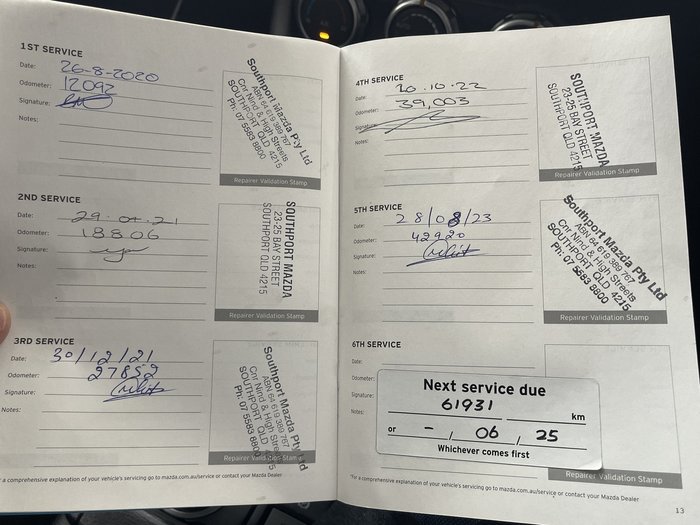 1ST SERVICE
Date: 26-8-2020
Odometer: 12092
Signature:
Notes:
Southport Mazda Pty Ltd
ABN 64 619 389 767
Cnr Nind & High Streets
SOUTHPORT QLD 4215
Ph: 07 5583 8800
Repairer Validation Stamp
2ND SERVICE
Date: 29.04.21
Odometer: 18806
Signature:
Notes:
SOUTHPORT MAZDA
23-25 BAY STREET
SOUTHPORT QLD 4215
Repairer Validation Stamp
3RD SERVICE
Date: 30/12/21
Odometer: 27852
Signature:
Notes:
Southport Mazda Pty Ltd
ABN 64 619 389 767
Cnr Nind & High Streets
SOUTHPORT QLD 4215
Ph: 07 5583 8800
Repairer Validation Stamp
a comprehensive explanation of your vehicle's servicing go to mazda.com.au/service or contact your Mazda Dealer
4TH SERVICE
Date: 20.10.22
Odometer: 39,003
Signature:
Notes:
SOUTHPORT MAZDA
23-25 BAY STREET
SOUTHPORT QLD 4215
Repairer Validation Stamp
5TH SERVICE
Date: 28/08/23
Odometer: 42920
Signature:
Notes:
Southport Mazda Pty Ltd
ABN 64 619 389 767
Cnr Nind & High Streets
SOUTHPORT QLD 4215
Ph: 07 5583 8800
Repairer Validation Stamp
6TH SERVICE
Date:
Odometer:
Signature:
Notes:
Next service due
61931 km
or - / 06 / 25
Whichever comes first
Repairer Validation Stamp
*For a comprehensive explanation of your vehicle's servicing go to mazda.com.au/service or contact your Mazda Dealer
13